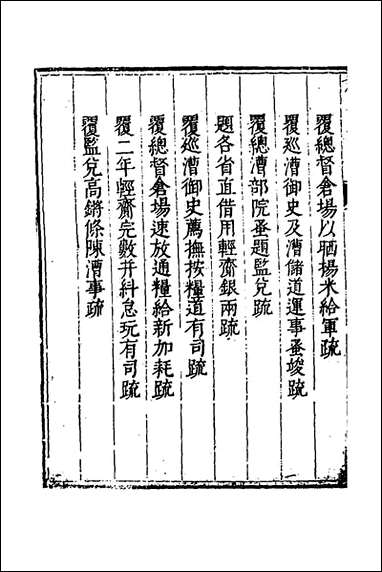 覆總督倉場以晒揚米給軍疏
覆巡漕御史及漕儲道運事蚤竣疏
覆總漕部院蚤題監兌疏
題各省直借用輕齎銀兩疏
覆巡漕御史薦撫按糧道有司疏
覆總督倉場速放通糧給新加耗疏
覆二年輕齎完數并糾怠玩有司疏
覆監兌高鏘條陳漕事疏